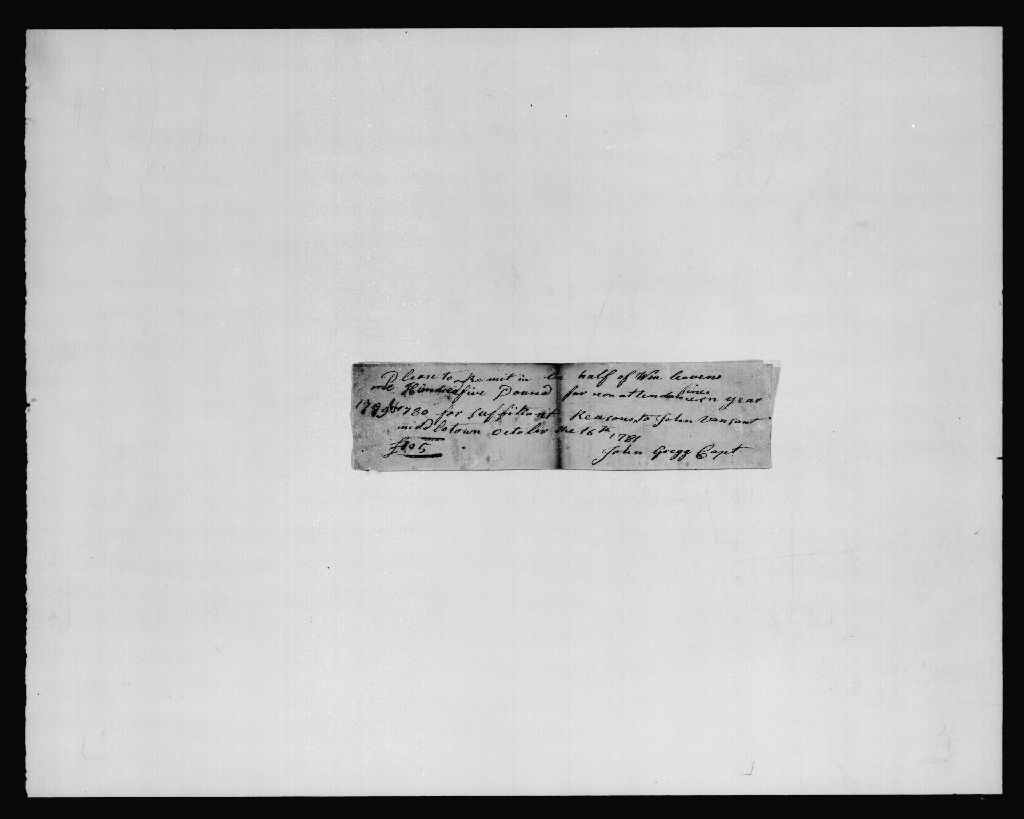 Please to Remit in be half of Wm leavens
one Hundred five Pound fines for nonattendance in year
1779 & 1780 for suffitiant Reasons to John Vansant
middletown october the 16th 1781
£105 John Gregg Capt